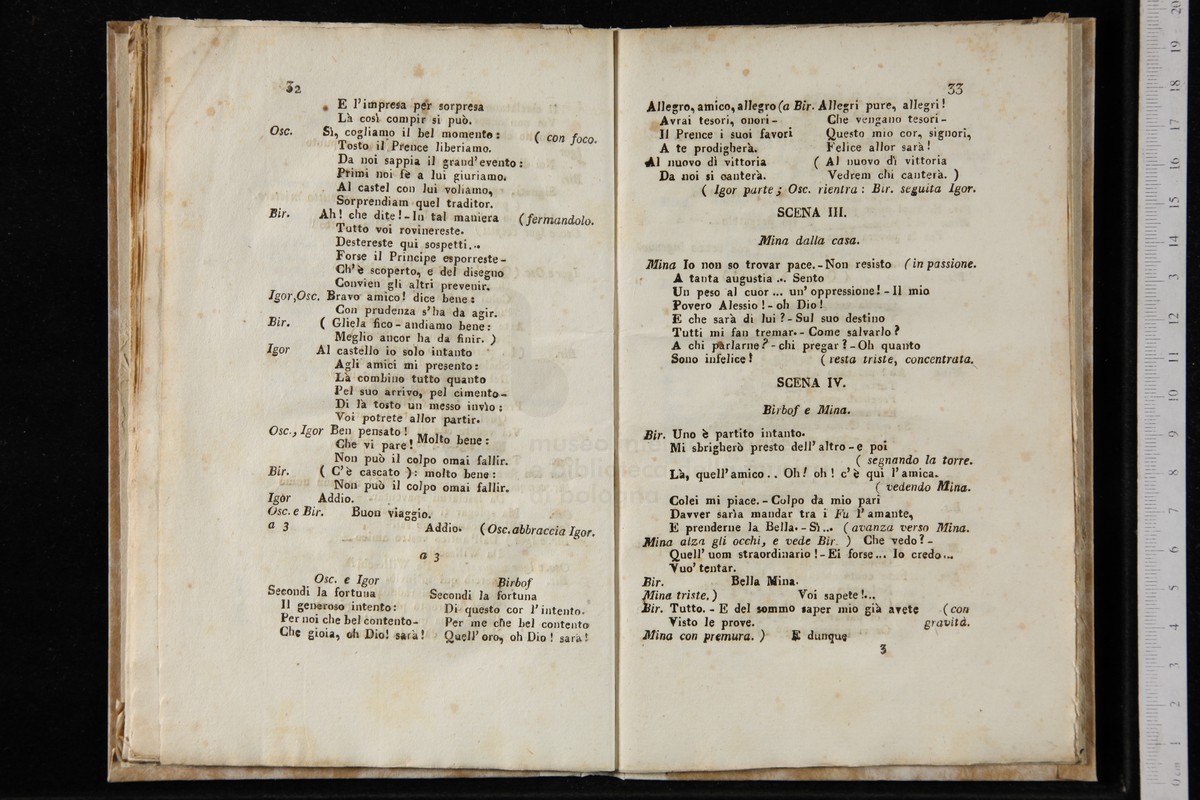 32
E l'impresa per sorpresa
Là così compir si può.
Osc. Sì, cogliamo il bel momento: ( con foco.
Tosto il Prence liberiamo.
Da noi sappia il grand'evento:
Primi noi fè a lui giuriamo.
Al castel con lui voliamo,
Sorprendiam quel traditor.
Bir. Ah! che dite!-In tal maniera (fermandolo.
Tutto voi rovinereste.
Destereste qui sospetti...
Forse il Principe esporreste-
Ch'è scoperto, e del disegno
Convien gli altri prevenir.
Igor,Osc. Bravo amico! dice bene:
Con prudenza s'ha da agir.
Bir. ( Gliela fico-andiamo bene:
Meglio ancor ha da finir. )
Igor Al castello io solo intanto
Agli amici mi presento:
Là combino tutto quanto
Pel suo arrivo, pel cimento-
Di là tosto un messo invìo:
Voi potrete allor partir.
Osc., Igor Ben pensato!
Che vi pare! Molto bene:
Non può il colpo omai fallir.
Bir. ( C'è cascato ): molto bene:
Non può il colpo omai fallir.
Igor Addio.
Osc. e Bir. Buon viaggio.
a 3 Addio. (Osc. abbraccia Igor.
a 3
Osc. e Igor
Secondi la fortuna
Il generoso intento:
Per noi che bel contento-
Che gioia, oh Dio! sarà!
Birbof
Secondi la fortuna
Di questo cor l'intento.
Per me che bel contento
Quell'oro, oh Dio! sarà!
33
Allegro, amico, allegro (a Bir. Allegri pure, allegri!
Avrai tesori, onori- Che vengano tesori-
Il Prence i suoi favori Questo mio cor, signori,
A te prodigherà. Felice allor sarà!
Al nuovo dì vittoria ( Al nuovo dì vittoria
Da noi si canterà. Vedrem chi canterà. )
( Igor parte; Osc. rientra: Bir. seguita Igor.
SCENA III.
Mina dalla casa.
Mina Io non so trovar pace.-Non resisto (in passione.
A tanta augustia... Sento
Un peso al cuor... un'oppressione!-Il mio
Povero Alessio!-oh Dio!
E che sarà di lui?-Sul suo destino
Tutti mi fan tremar.-Come salvarlo?
A chi parlarne?-chi pregar?-Oh quanto
Sono infelice! (resta triste, concentrata.
SCENA IV.
Birbof e Mina.
Bir. Uno è partito intanto.
Mi sbrigherò presto dell'altro-e poi
( segnando la torre.
Là, quell'amico.. Oh! oh! c'è qui l'amica.
( vedendo Mina.
Colei mi piace.-Colpo da mio pari
Davver sarìa mandar tra i Fu l'amante,
E prenderne la Bella.-Sì... (avanza verso Mina.
Mina alza gli occhi, e vede Bir. ) Che vedo?-
Quell'uom straordinario!-Ei forse... Io credo...
Vuo' tentar.
Bir. Bella Mina.
Mina triste.) Voi sapete!...
Bir. Tutto.-E del sommo saper mio già avete (con
Visto le prove. gravità.
Mina con premura. ) E dunque
3